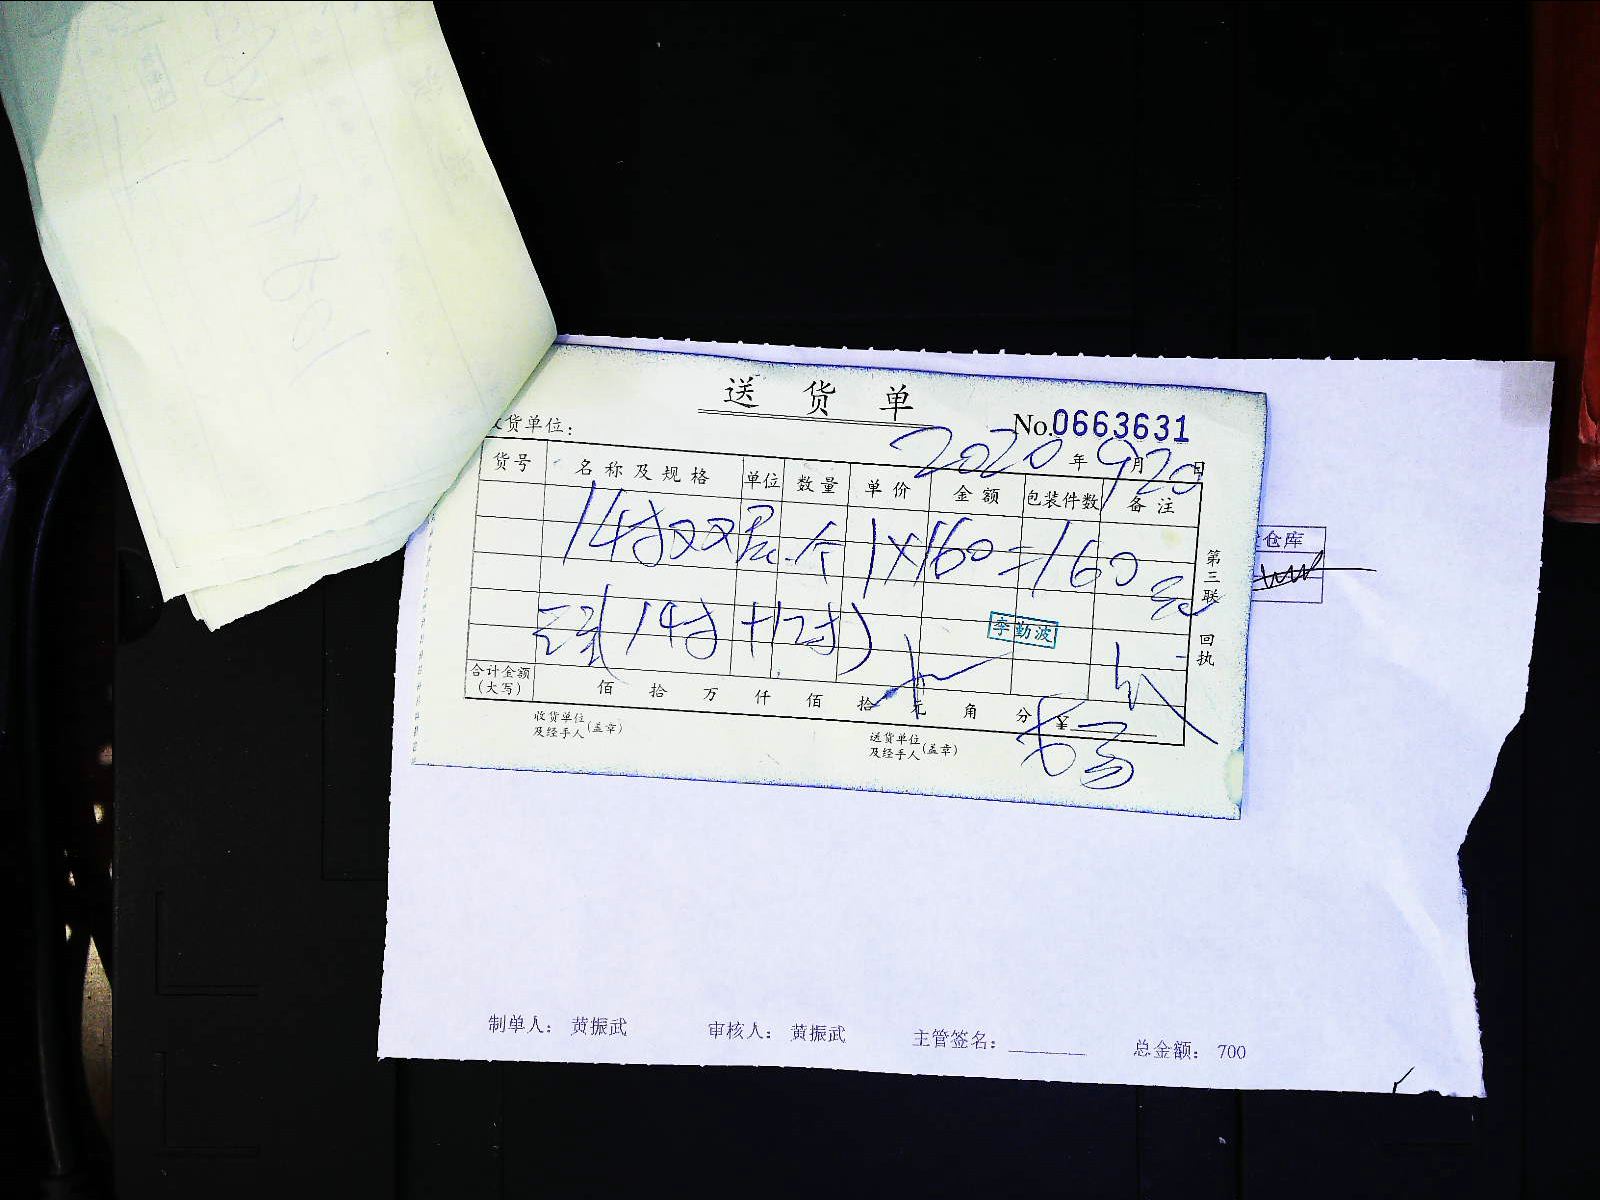 送货单
No.0663631
收货单位：
2020年9月20日
货号 名称及规格 单位 数量 单价 金额 包装件数 备注
14寸双层 个 1×160=160元
(14寸+12寸)
李勤波
合计金额（大写） 佰 拾 万 仟 佰 拾 元 角 分 ¥
收货单位及经手人（盖章）
送货单位及经手人（盖章）
第三联 回执
仓库
制单人： 黄振武 审核人： 黄振武 主管签名： 总金额： 700